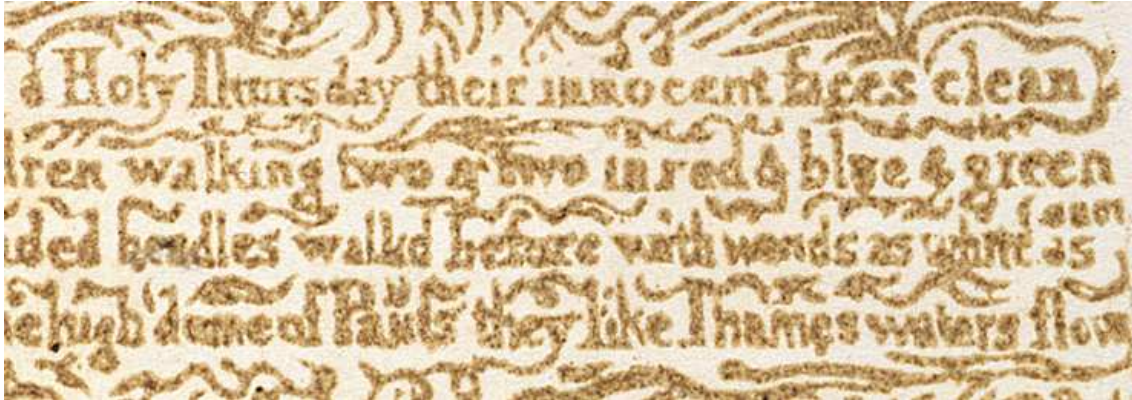 a Holy Thursday their innocent faces clean
dren walking two & two in red & blue & green
ded beadles walkd before with wands as white as
snow
e high dome of Pauls they like Thames waters flow